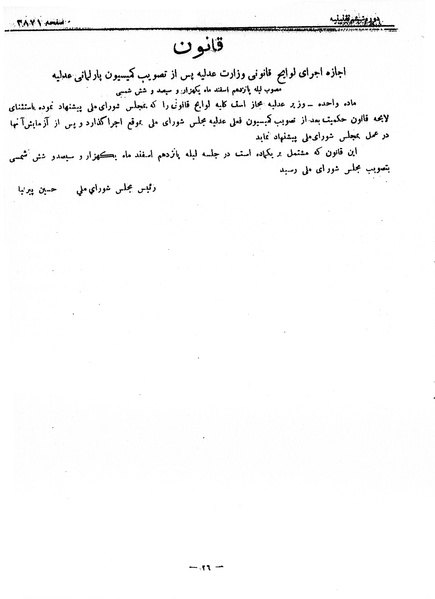 صفحه ۳۸۷۱
قانون
اجازه اجرای لوایح قانونی وزارت عدلیه پس از تصویب کمیسیون پارلمانی عدلیه
مصوب لیله پانزدهم اسفند ماه یکهزار و سیصد و شش شمسی
ماده واحده - وزیر عدلیه مجاز است کلیه لوایح قانونی را که بمجلس شورای ملی پیشنهاد نموده باستثنای
لایحه قانون حکمیت بعد از تصویب کمیسیون فعلی عدلیه مجلس شورای ملی بموقع اجرا گذارد و پس از آزمایش آنها
در عمل بمجلس شورای ملی پیشنهاد نماید
این قانون که مشتمل بر یکماده است در جلسه لیله پانزدهم اسفند ماه یکهزار و سیصد و شش شمسی
بتصویب مجلس شورای ملی رسید
رئیس مجلس شورای ملی حسین پیرنیا
- ۲۶ -